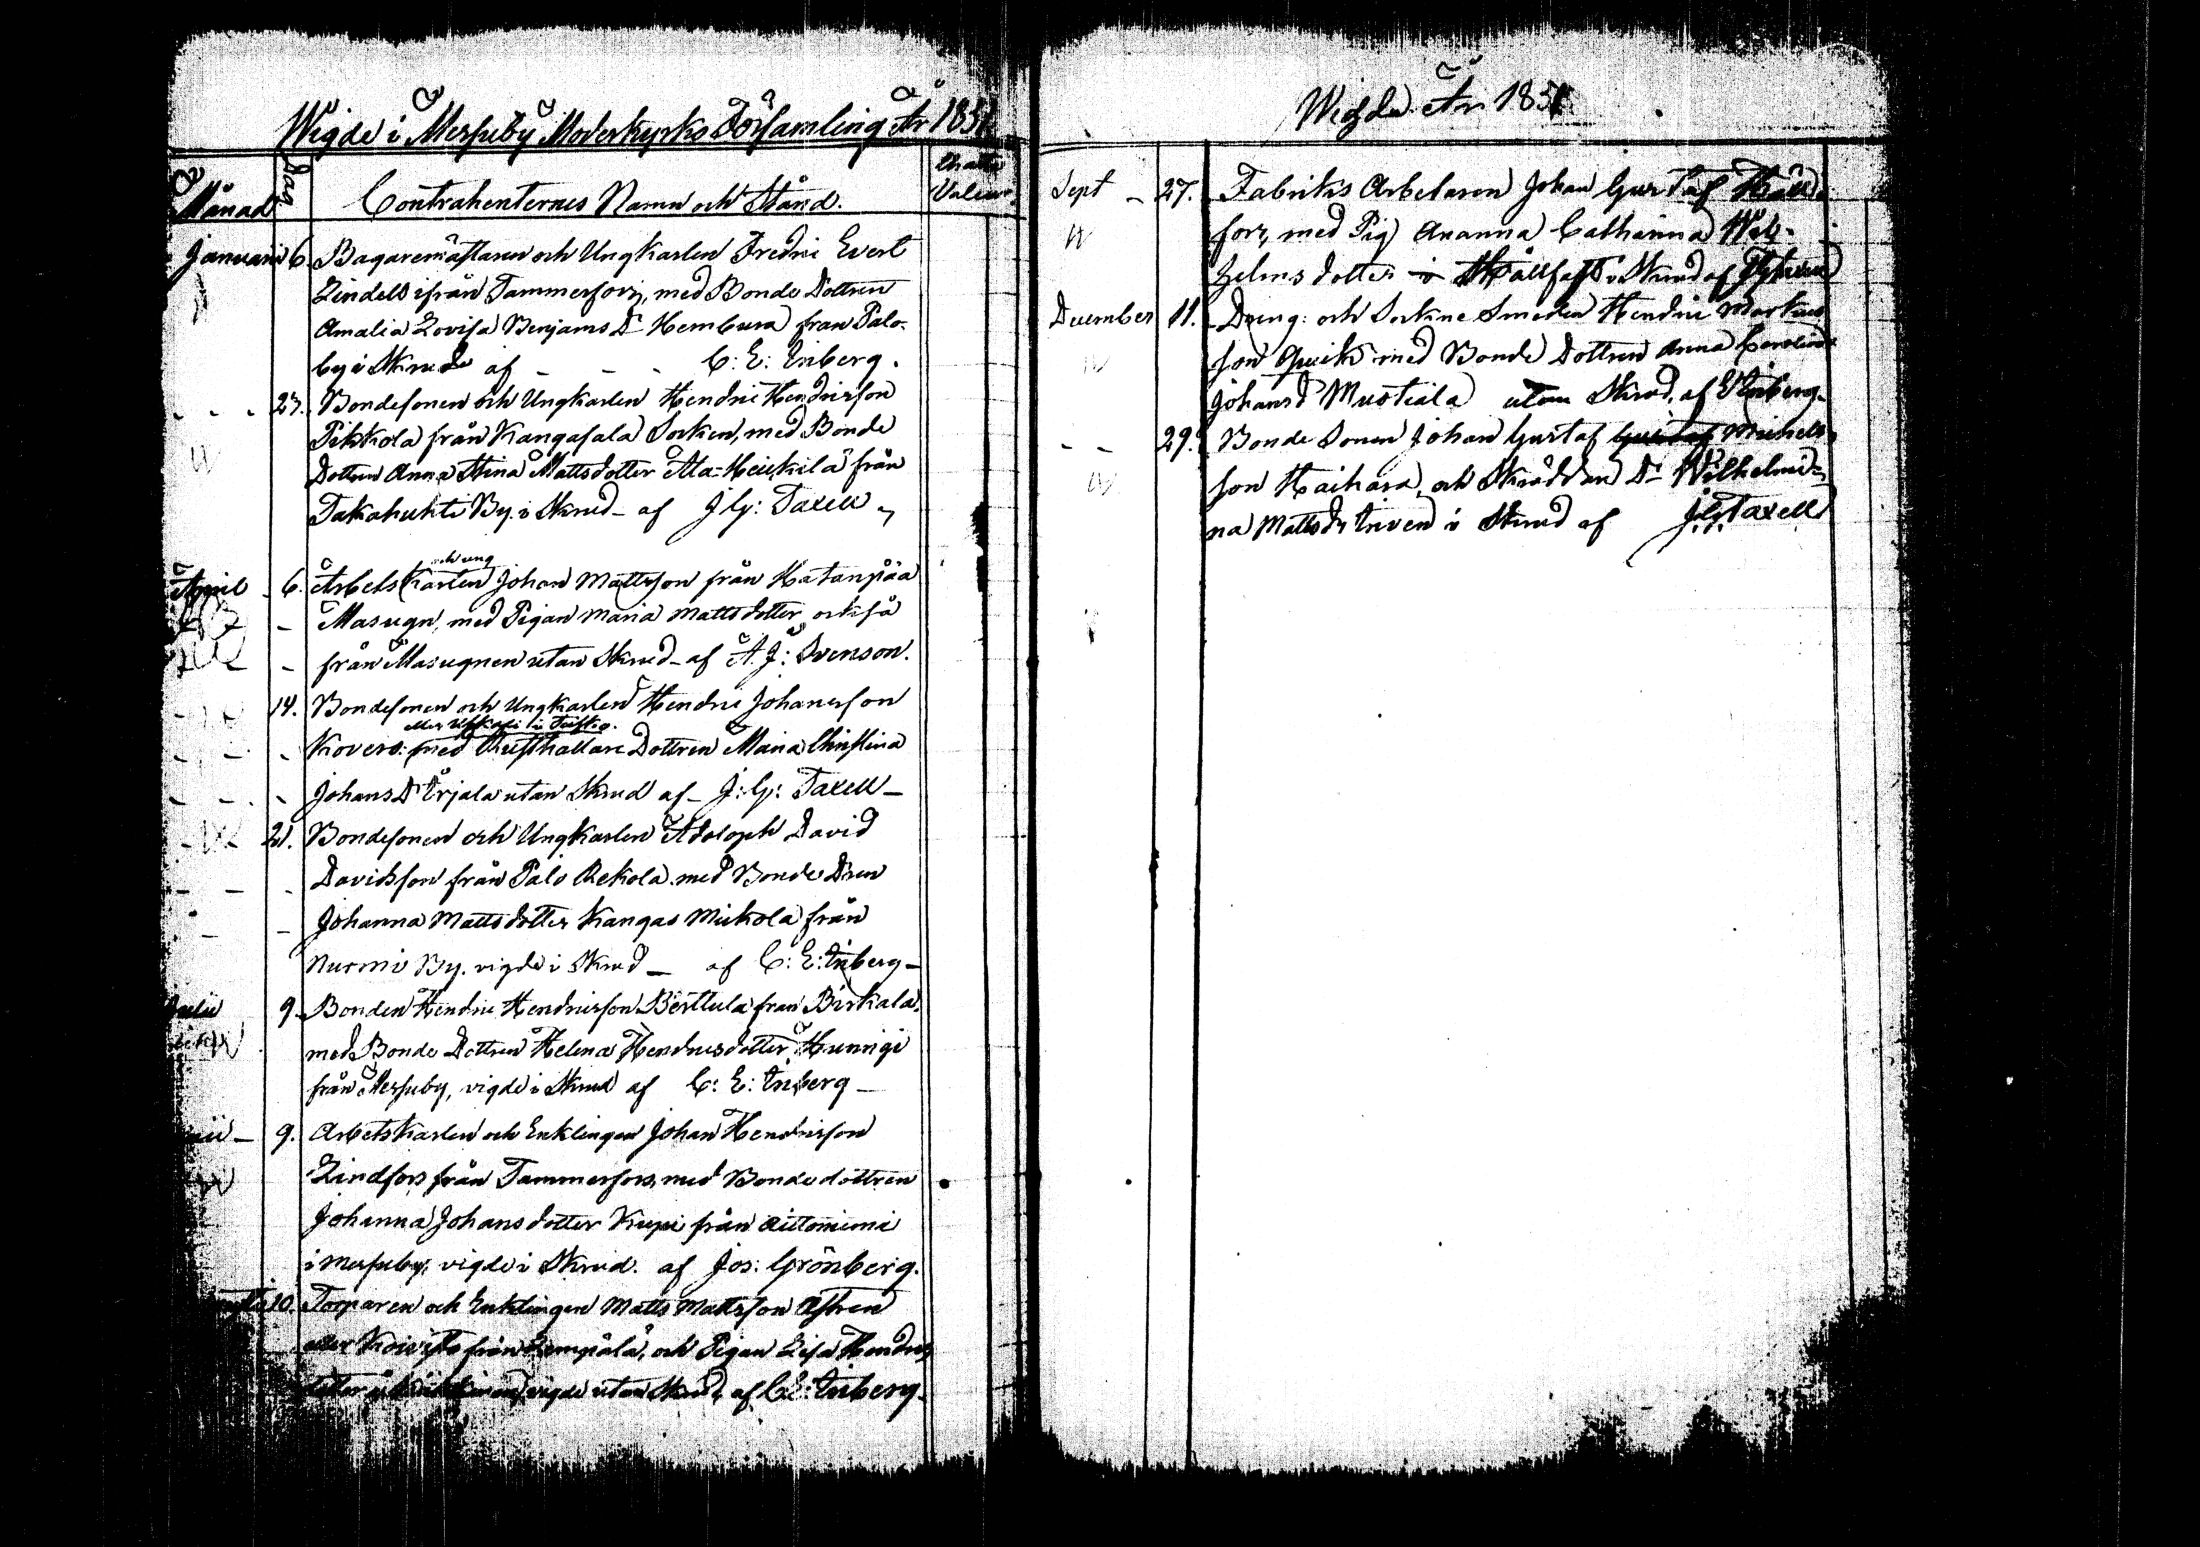 Wigde i Messuby Moderkyrko Församling År 1851
Månad Dag Contrahenternes Namn och Stånd.
Januari 6. Bagaremästaren och Ungkarlen Fredric Evert
Lindell ifrån Tammerfors, med Bonde Dottren
Amalia Lovisa Benjams Dr Hembura från Palo-
by i Skrud af - - - C: E: Enberg.
- - - 23. Bondesonen och Ungkarlen Hendric Hendricsson
Pikkola från Kangasala Socken, med Bonde
Dottren Anna Stina Mattsdotter Ala-Heikkilä från
Takahuhti By. i Skrud - af J G: Taxell
och ung
April - 6. Arbets Karlen Johan Mattsson från Hatanpää
- Masugn, med Pigan Maria Mattsdotter också
- från Masugnen utan Skrud - af A. J: Svenson.
14. Bondesonen och Ungkarlen Hendric Johansson
eller i
- - - Kovero: med Rusthållare Dottren Maria Christina
- - - Johans Dr Erjala utan Skrud af - J: G: Taxell -
21. Bondesonen och Ungkarlen Adoloph David
- - - Davidsson från Palo Rekola. med Bonde Dren
- - Johanna Mattsdotter Kangas Mickola från
Nurmi By. vigde i Skrud - af C: E: Enberg -
9. Bonden Hendric Hendricsson Berttula från Birkala.
med Bonde Dottren Helena Hendricsdotter Hunnigi
från Messuby, vigde i Skrud af C: E: Enberg -
9. Arbetskarlen och Enklingen Johan Hendricsson
Lindfors från Tammerfors, med Bondedottren
Johanna Johansdotter Kupi från Aittoniemi
i Messuby, vigde i Skrud. af Jos: Grönberg.
10. Torparen och Enklingen Matts Mattsson
eller Koivisto från Lempälä, och Pigan Lisa Hendrics
dotter vigde utan Skrud, af C: E: Enberg.
Wigde År 1851
Sept - 27. Fabriks Arbetaren Johan Gustaf Häll-
fors, med Pig Ananna Catharina Wil-
helmsdotter i Skrud af
December 11. Dreng: och Sockne Smeden Hendric Markus
son Qvick med Bonde Dottren Anna Carolina
Johans d Mustiala utan Skrud, af Enberg.
- - 29. Bonde Sonen Johan Gustaf Gustaf Michels
son Kaihara, och Skräddare Dr Wilhelmi-
na Matts dr i Skrud af J. G. Taxell